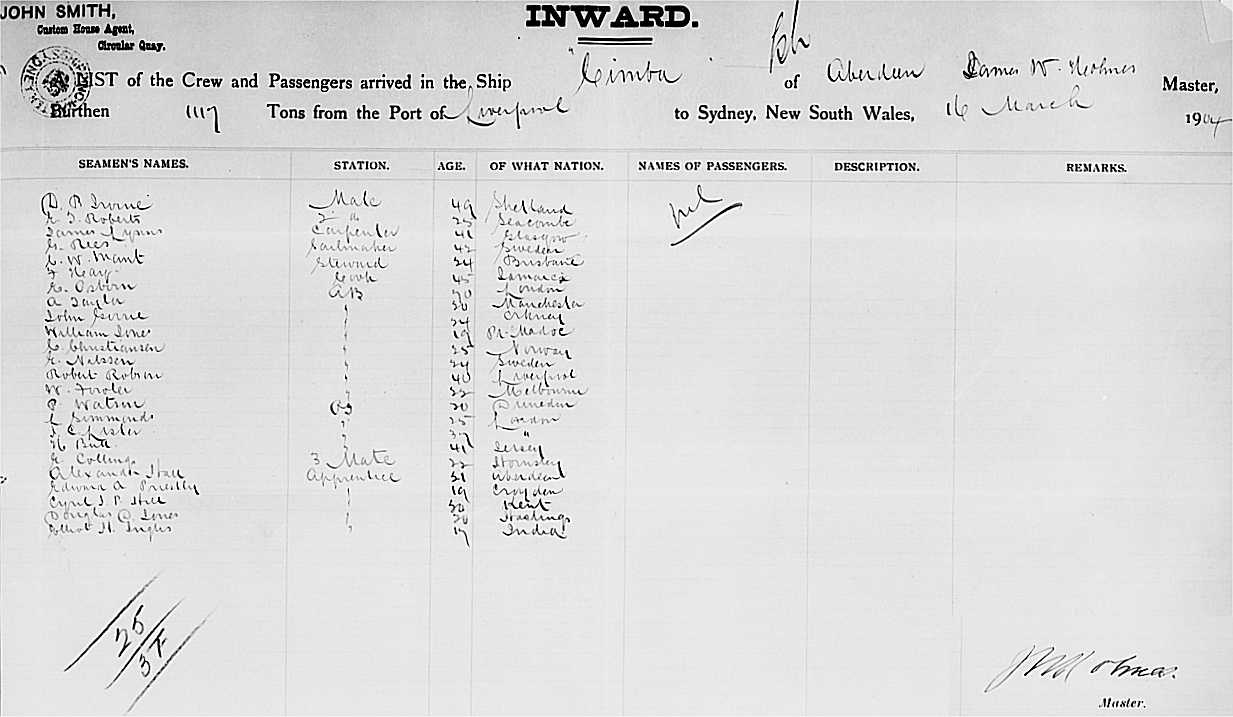 JOHN SMITH,
Custom House Agent,
Circular Quay.
INWARD.
LIST of the Crew and Passengers arrived in the Ship "Cimba" of Aberdeen James W. Holmes Master,
Burthen 1117 Tons from the Port of Liverpool to Sydney, New South Wales, 16 March 1904
SEAMEN'S NAMES. STATION. AGE. OF WHAT NATION. NAMES OF PASSENGERS. DESCRIPTION. REMARKS.
D. P. Irvine Mate 49 Shetland nil
E. T. Roberts 2 " 25 Seacombe
James Lyons Carpenter 41 Glasgow
G. Rees Sailmaker 42 Sweden
C. W. Mant Steward 24 Brisbane
F. Hay Cook 45 Jamaica
E. Osborn AB 20 London
A Taylor " 30 Manchester
John Gorrie " 24 Orkney
William Jones " 19 Pt. Madoc
C. Christiansen " 25 Norway
E. Nilsson " 24 Sweden
Robert Robson " 40 Liverpool
W. Fowler " 22 Melbourne
P. Watson OS 20 Dunedin
L Simmonds " 25 London
T. C. Lister " "
H Butt " 41 Jersey
E. Collings 3 Mate 22 Hornsley
Alexander Hall Apprentice 21 Aberdeen
Edward A Priestley " 19 Croydon
Cyril J. P. Hill " 20 Kent
Douglas D. Jones " 20 Hastings
Elliot H. Inglis " 17 India
25
J W Holmes.
Master.